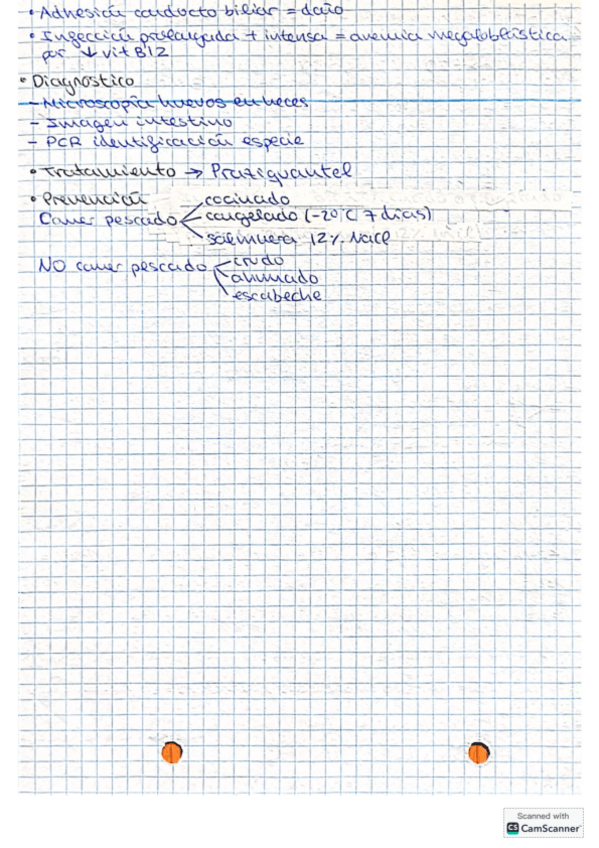 • Adhesión conducto biliar = daño
• Ingección prolongada + intensa = anemia megaloblástica
por ↓ vit B12
• Diagnostico
- Microscopía huevos en heces
- Imagen intestino
- PCR identificación especie
• Tratamiento → Praziquantel
• Prevención
Comer pescado cocinado
congelado (-20°C 7 días)
salmuera 12% NaCl
NO comer pescado crudo
ahumado
escabeche
Scanned with
CS CamScanner